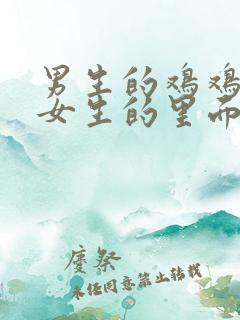 男生的鸡鸡
女生的里面
慶祭
未经同意禁止转载